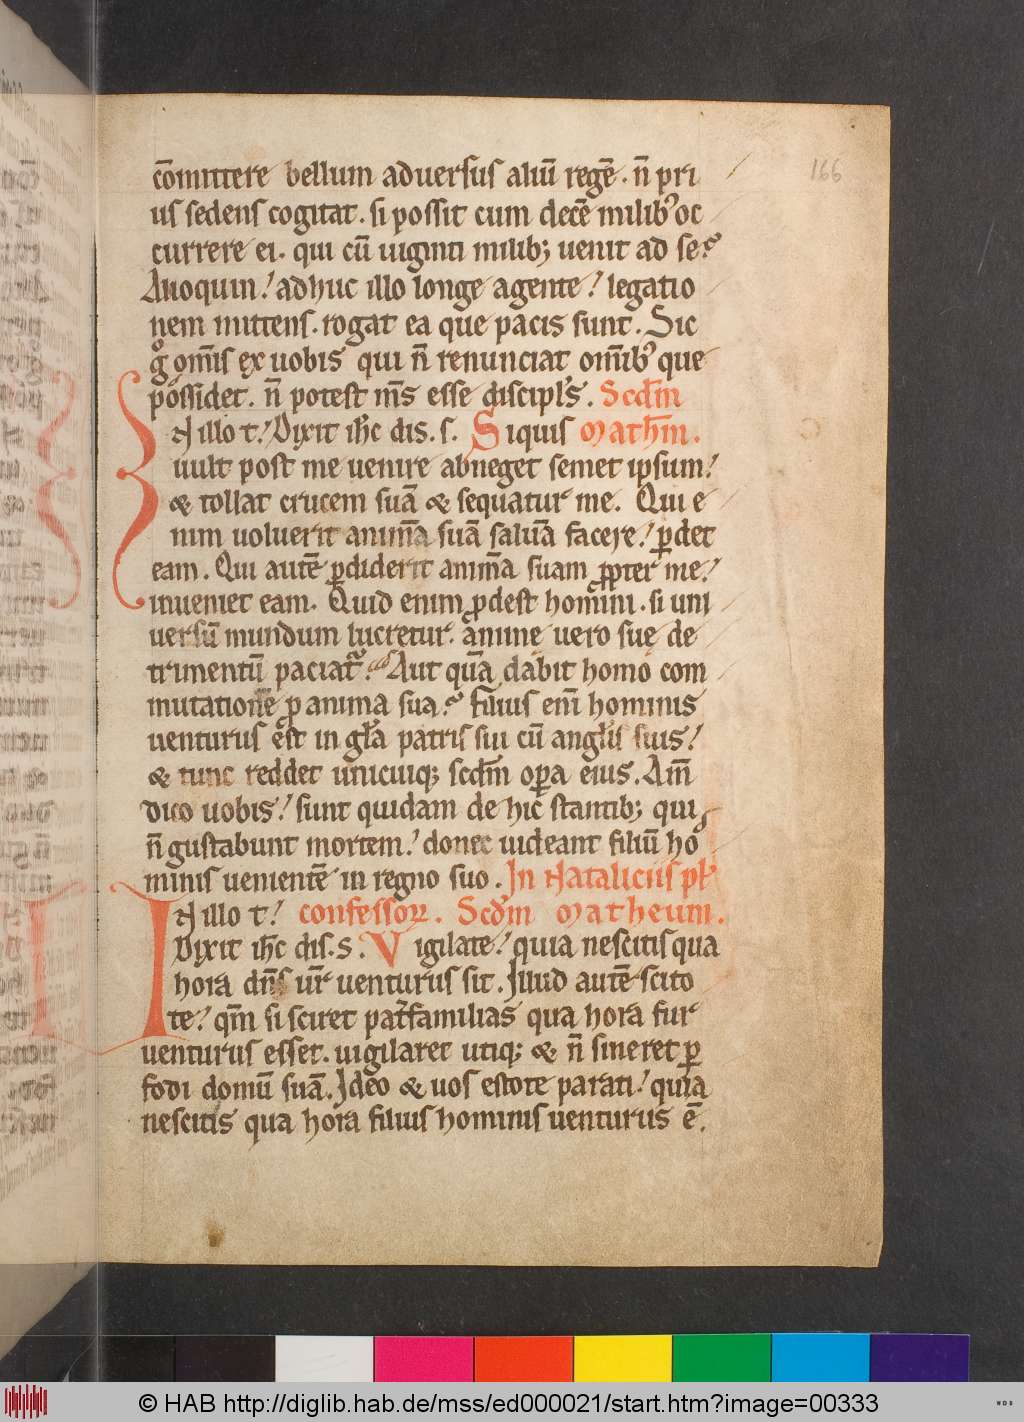 166
cōmittere bellum aduersus aliū regē. n̄ pri
us sedens cogitat. si possit cum decē milibꝰ oc
currere ei. qui cū uiginti milibꝫ uenit ad se?
Alioquin! adhuc illo longe agente! legatio
nem mittens. rogat ea que pacis sunt. Sic
gͦ om̄is ex uobis qui n̄ renunciat om̄ibꝰ que
possidet. n̄ potest mīs esse discipl̄s. Scd̄m
N illo t! Dixit ih̄c dis. s. Siquis Math̄m.
uult post me uenire abneget semet ipsum!
& tollat crucem suā & sequatur me. Qui e
nim uoluerit animā suā saluā facere! ꝑdet
eam. Qui autē ꝑdiderit animā suam ꝓpter me!
inueniet eam. Quid enim ꝓdest homini. si uni
uersū mundum lucretur. anime uero sue de
trimentū paciat᷑? Aut quā dabit homo com
mutationē ꝓ anima sua? filius eni hominis
uenturus ēst in gl̄a patris sui cū angl̄is suis!
& tunc reddet unicuiqꝫ scd̄m oꝑa eius. Am̄
dico uobis! sunt quidam de hic stantibꝫ qui
n̄ gustabunt mortem! donec uideant filiū ho
minis uenientē in regno suo. In Nataliciis pl̄
I N illo t! confessoꝝ. Scd̄m Matheum.
Dixit ih̄c dis. s. Vigilate! quia nescitis qua
hora dn̄s ur̄ uenturus sit. Illud autē scito
te! qm̄ si sciret pat̄familias qua hora fur
uenturus esset. uigilaret utiqꝫ & n̄ sineret ꝑ
fodi domū suā. Ideo & uos estote parati! quia
nescitis qua hora filius hominis uenturus ē.
© HAB http://diglib.hab.de/mss/ed000021/start.htm?image=00333